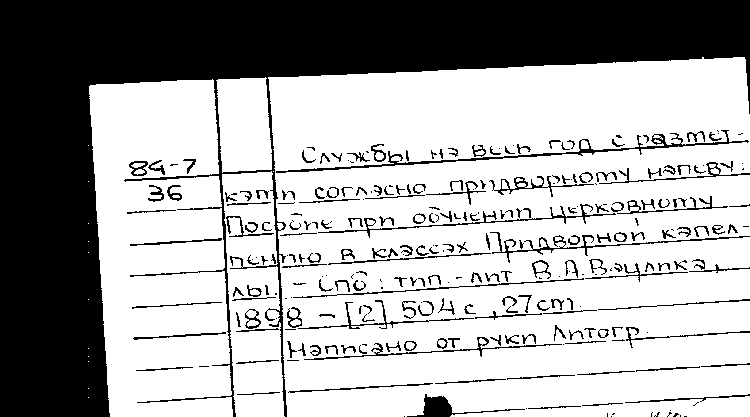 84-7
36
Службы на весь год с размет-
ками согласно придворному напеву:
Пособие при обучении церковному
пению в классах Придворной капел-
лы. - Спб : тип.-лит В.А.Вацлика,
1898 - [2], 504 с , 27 cm.
Написано от руки Литогр.